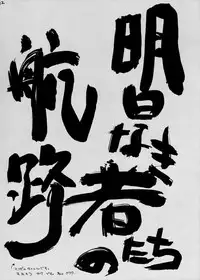 明日なき
者たちの
航路